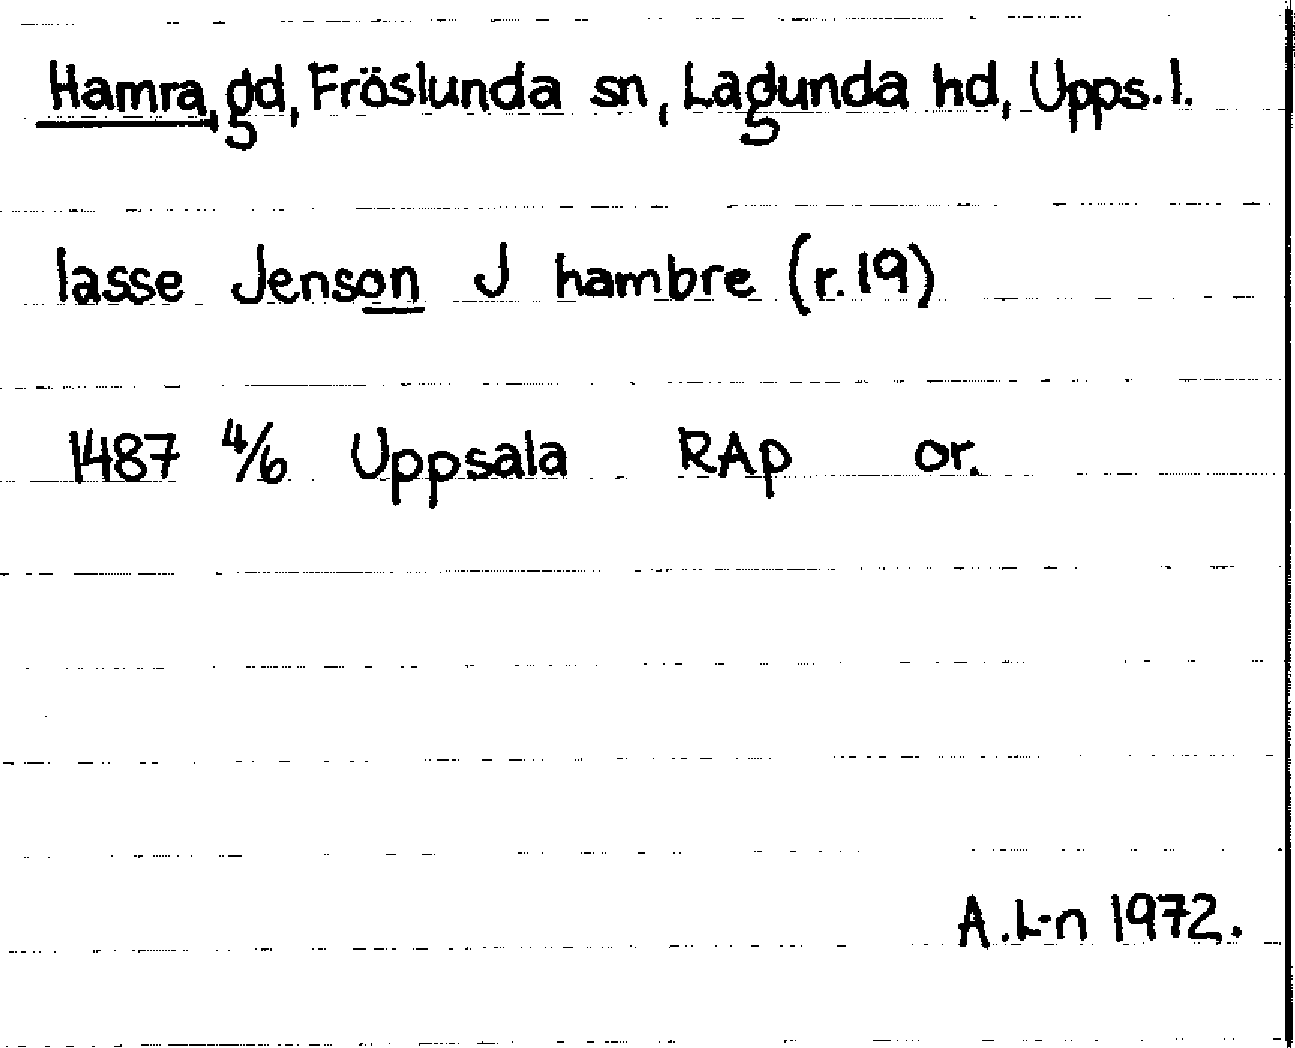 Hamra, gd, Fröslunda sn, Lagunda hd, Upps. l.
lasse Jenson J hambre (r. 19)
1487 4/6 Uppsala RAp or.
A. L-n 1972.